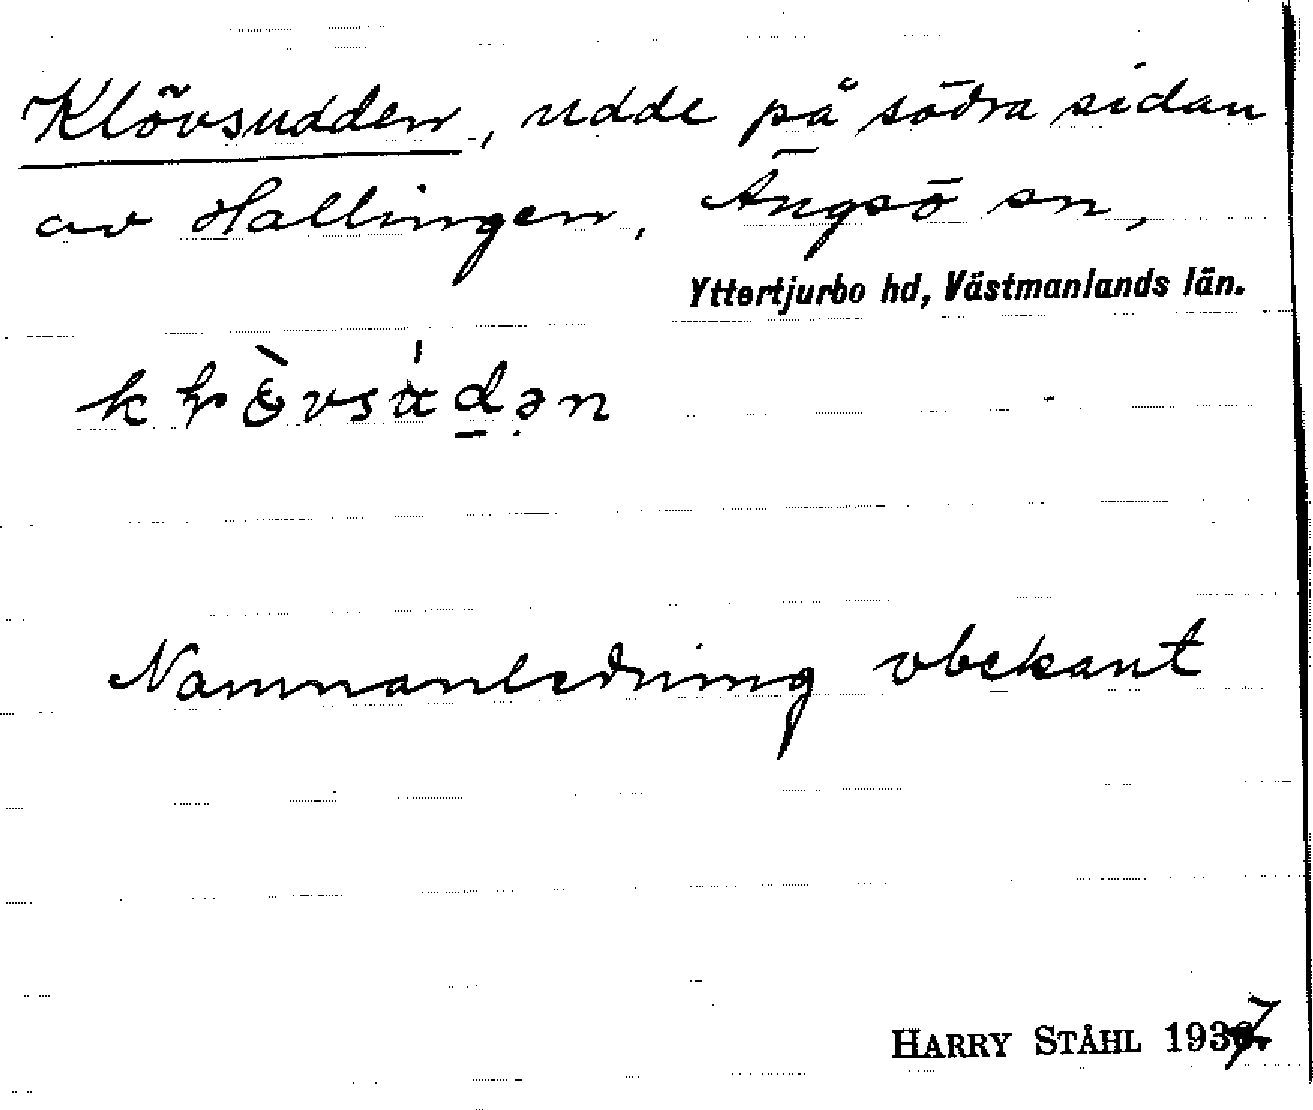 Klövsudden, udde på södra sidan
av Hallingen, Ängsö sn,
Yttertjurbo hd, Västmanlands län.
Namnanledning obekant
HARRY STÅHL 1937